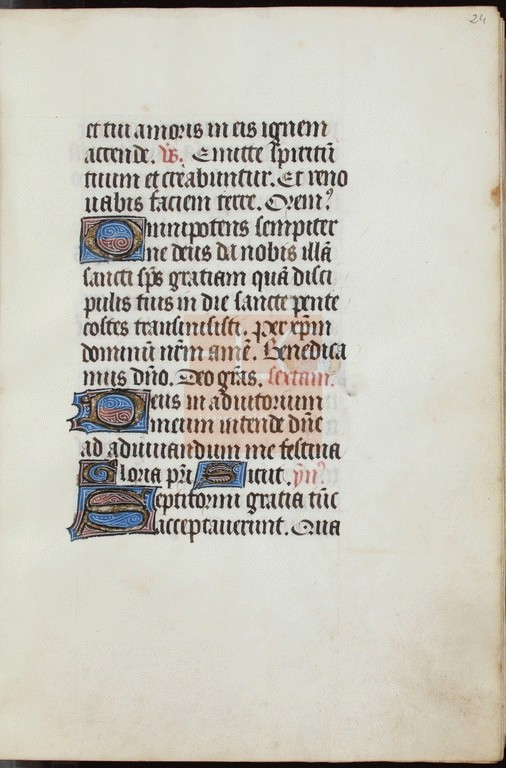 24
et tui amoris in eis ignem
accende. Vs. Emitte spiritū
tuum et creabuntur. Et reno
uabis faciem terre. Orem9
Omnipotens sempiter
ne deus da nobis illā
sancti sp̄s gratiam quā disci
pulis tuis in die sancte pente
costes transmisisti. per xp̄m
dominū nr̄m amē. Benedica
mus dn̄o. Deo gr̄as. sextam.
Deus in adiutorium
meum intende dn̄e
ad adiuuandum me festina
Gloria pr̄i Sicut. yn9
Septiformi gratia tūc
acceptauerunt. Qua